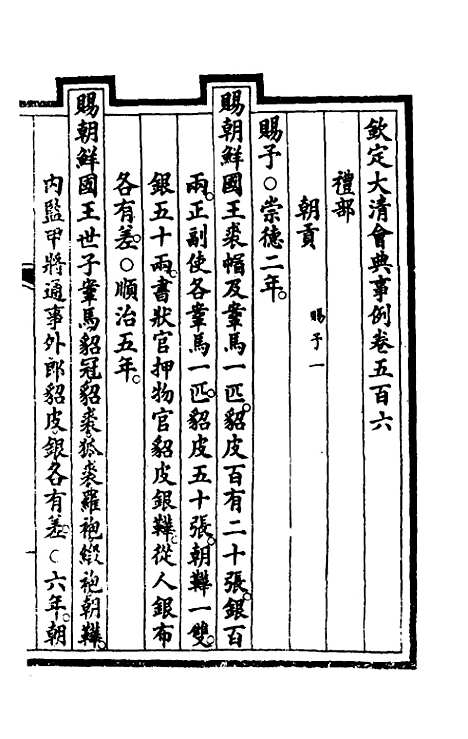 欽定大清會典事例卷五百六
禮部
朝貢 賜予一
賜予○崇德二年。
賜朝鮮國王裘帽及鞌馬一匹。貂皮百有二十張。銀百
兩。正副使各鞌馬一匹。貂皮五十張。朝鞾一雙。
銀五十兩。書狀官押物官貂皮銀鞾。從人銀布
各有差。○順治五年。
賜朝鮮國王世子鞌馬貂冠貂裘狐裘羅袍緞袍朝鞾。
內監甲將通事外郎貂皮銀各有差。○六年。朝